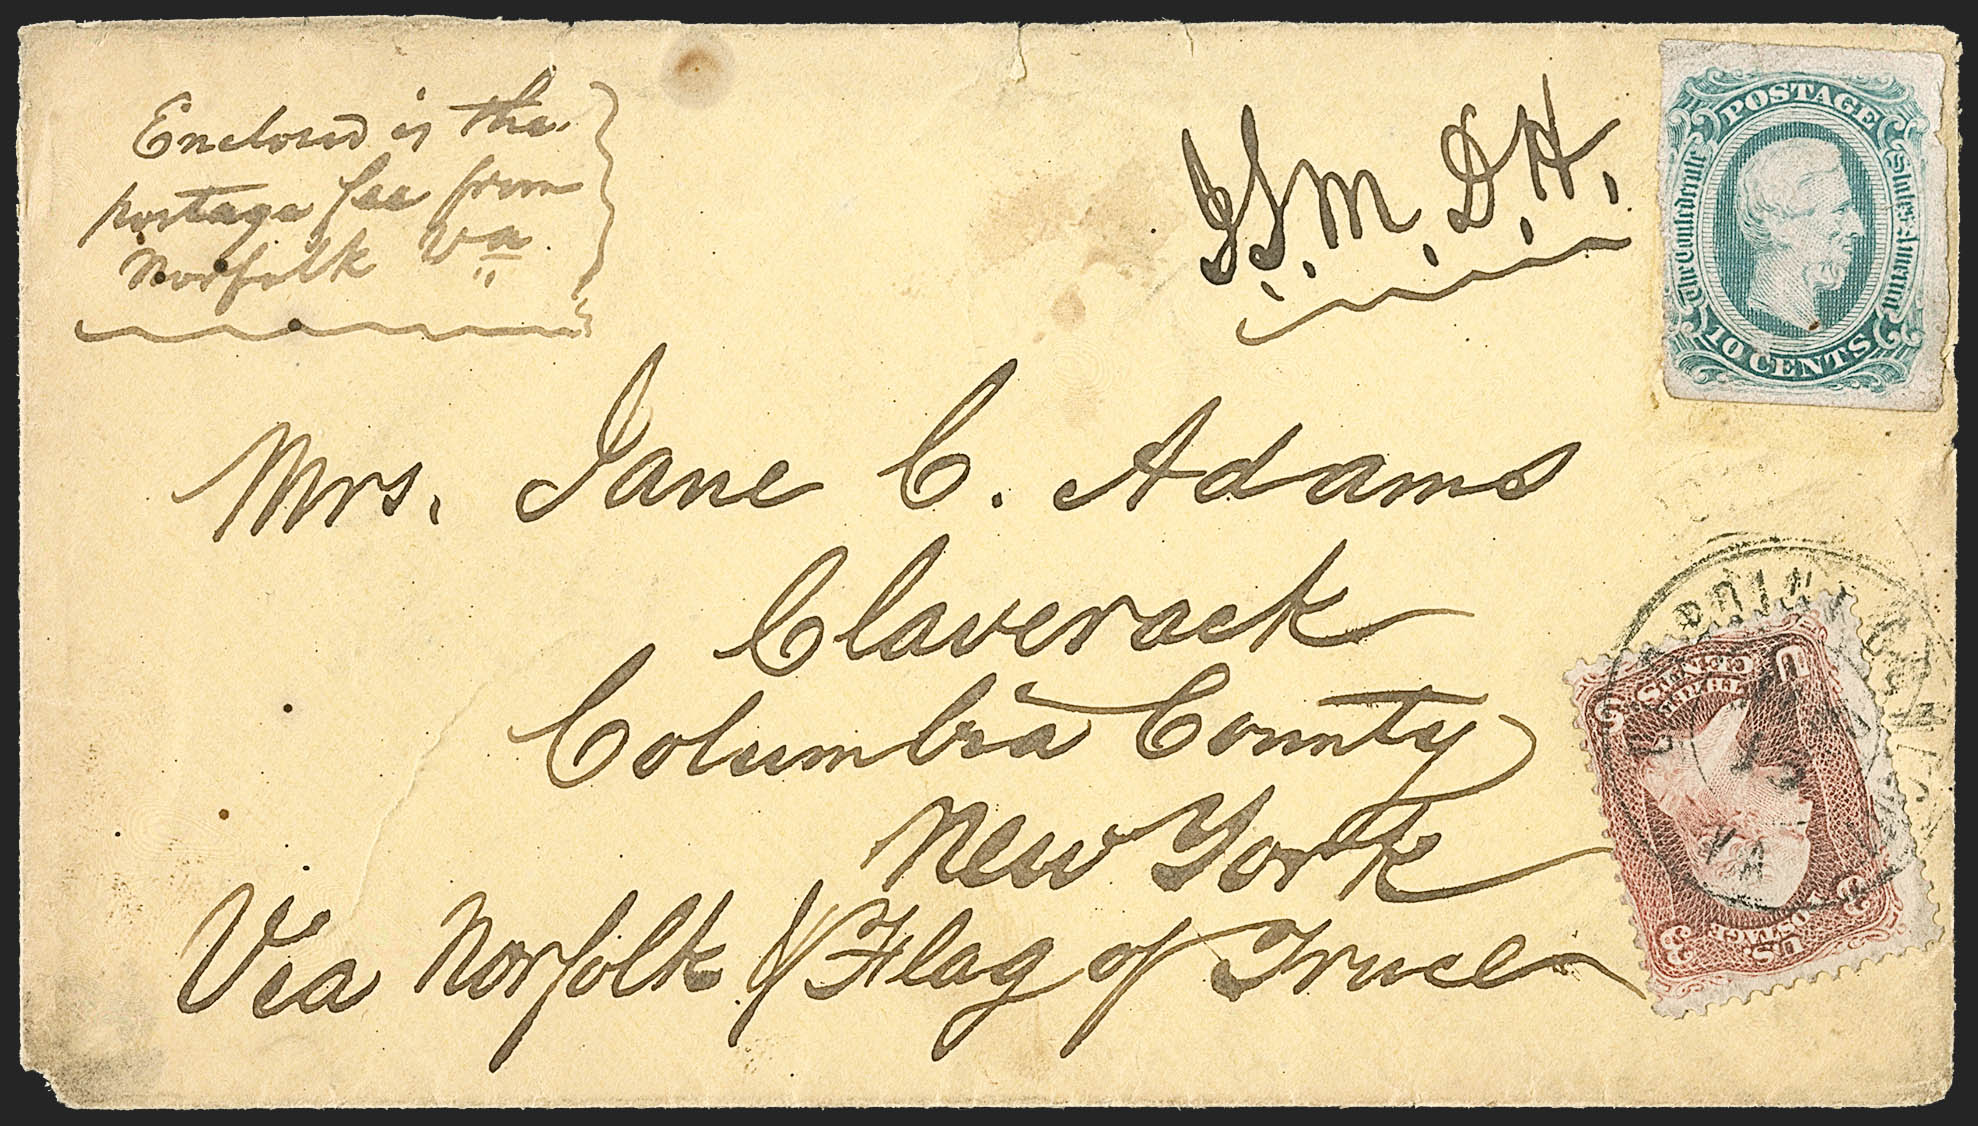 Enclosed is the
postage fee from
Norfolk Va
J S. M. D. H.
POSTAGE
The Confederate States America
10 CENTS
Mrs. Jane C. Adams
Claverack
Columbia County
New York
Via Norfolk & Flag of Truce
OLD POINT COMFORT
15
VA
U
THREE CENTS
3
U.S. POSTAGE
3